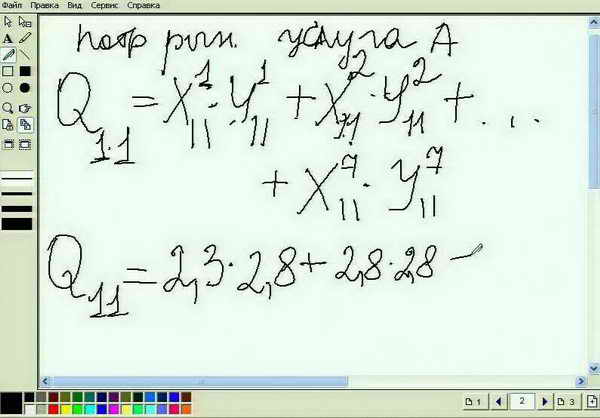 Файл Правка Вид Сервис Справка
потр рын. услуга А
Q₁.₁ = X¹₁₁ · Y¹₁₁ + X²₁₁ · Y²₁₁ + . . .
+ X⁷₁₁ · Y⁷₁₁
Q₁₁ = 2,3 · 2,8 + 2,8 · 2,8
1 2 3